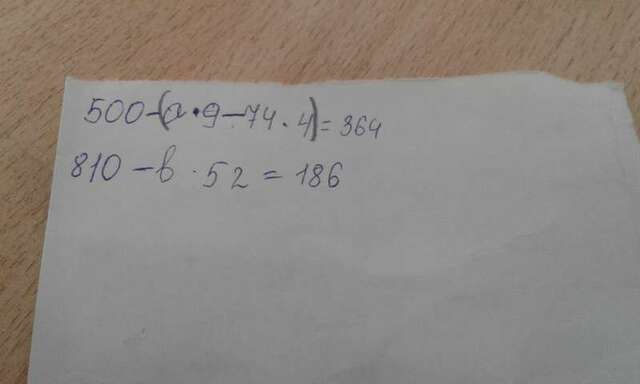 500-(a·9-74·4)=364
810-в·52=186